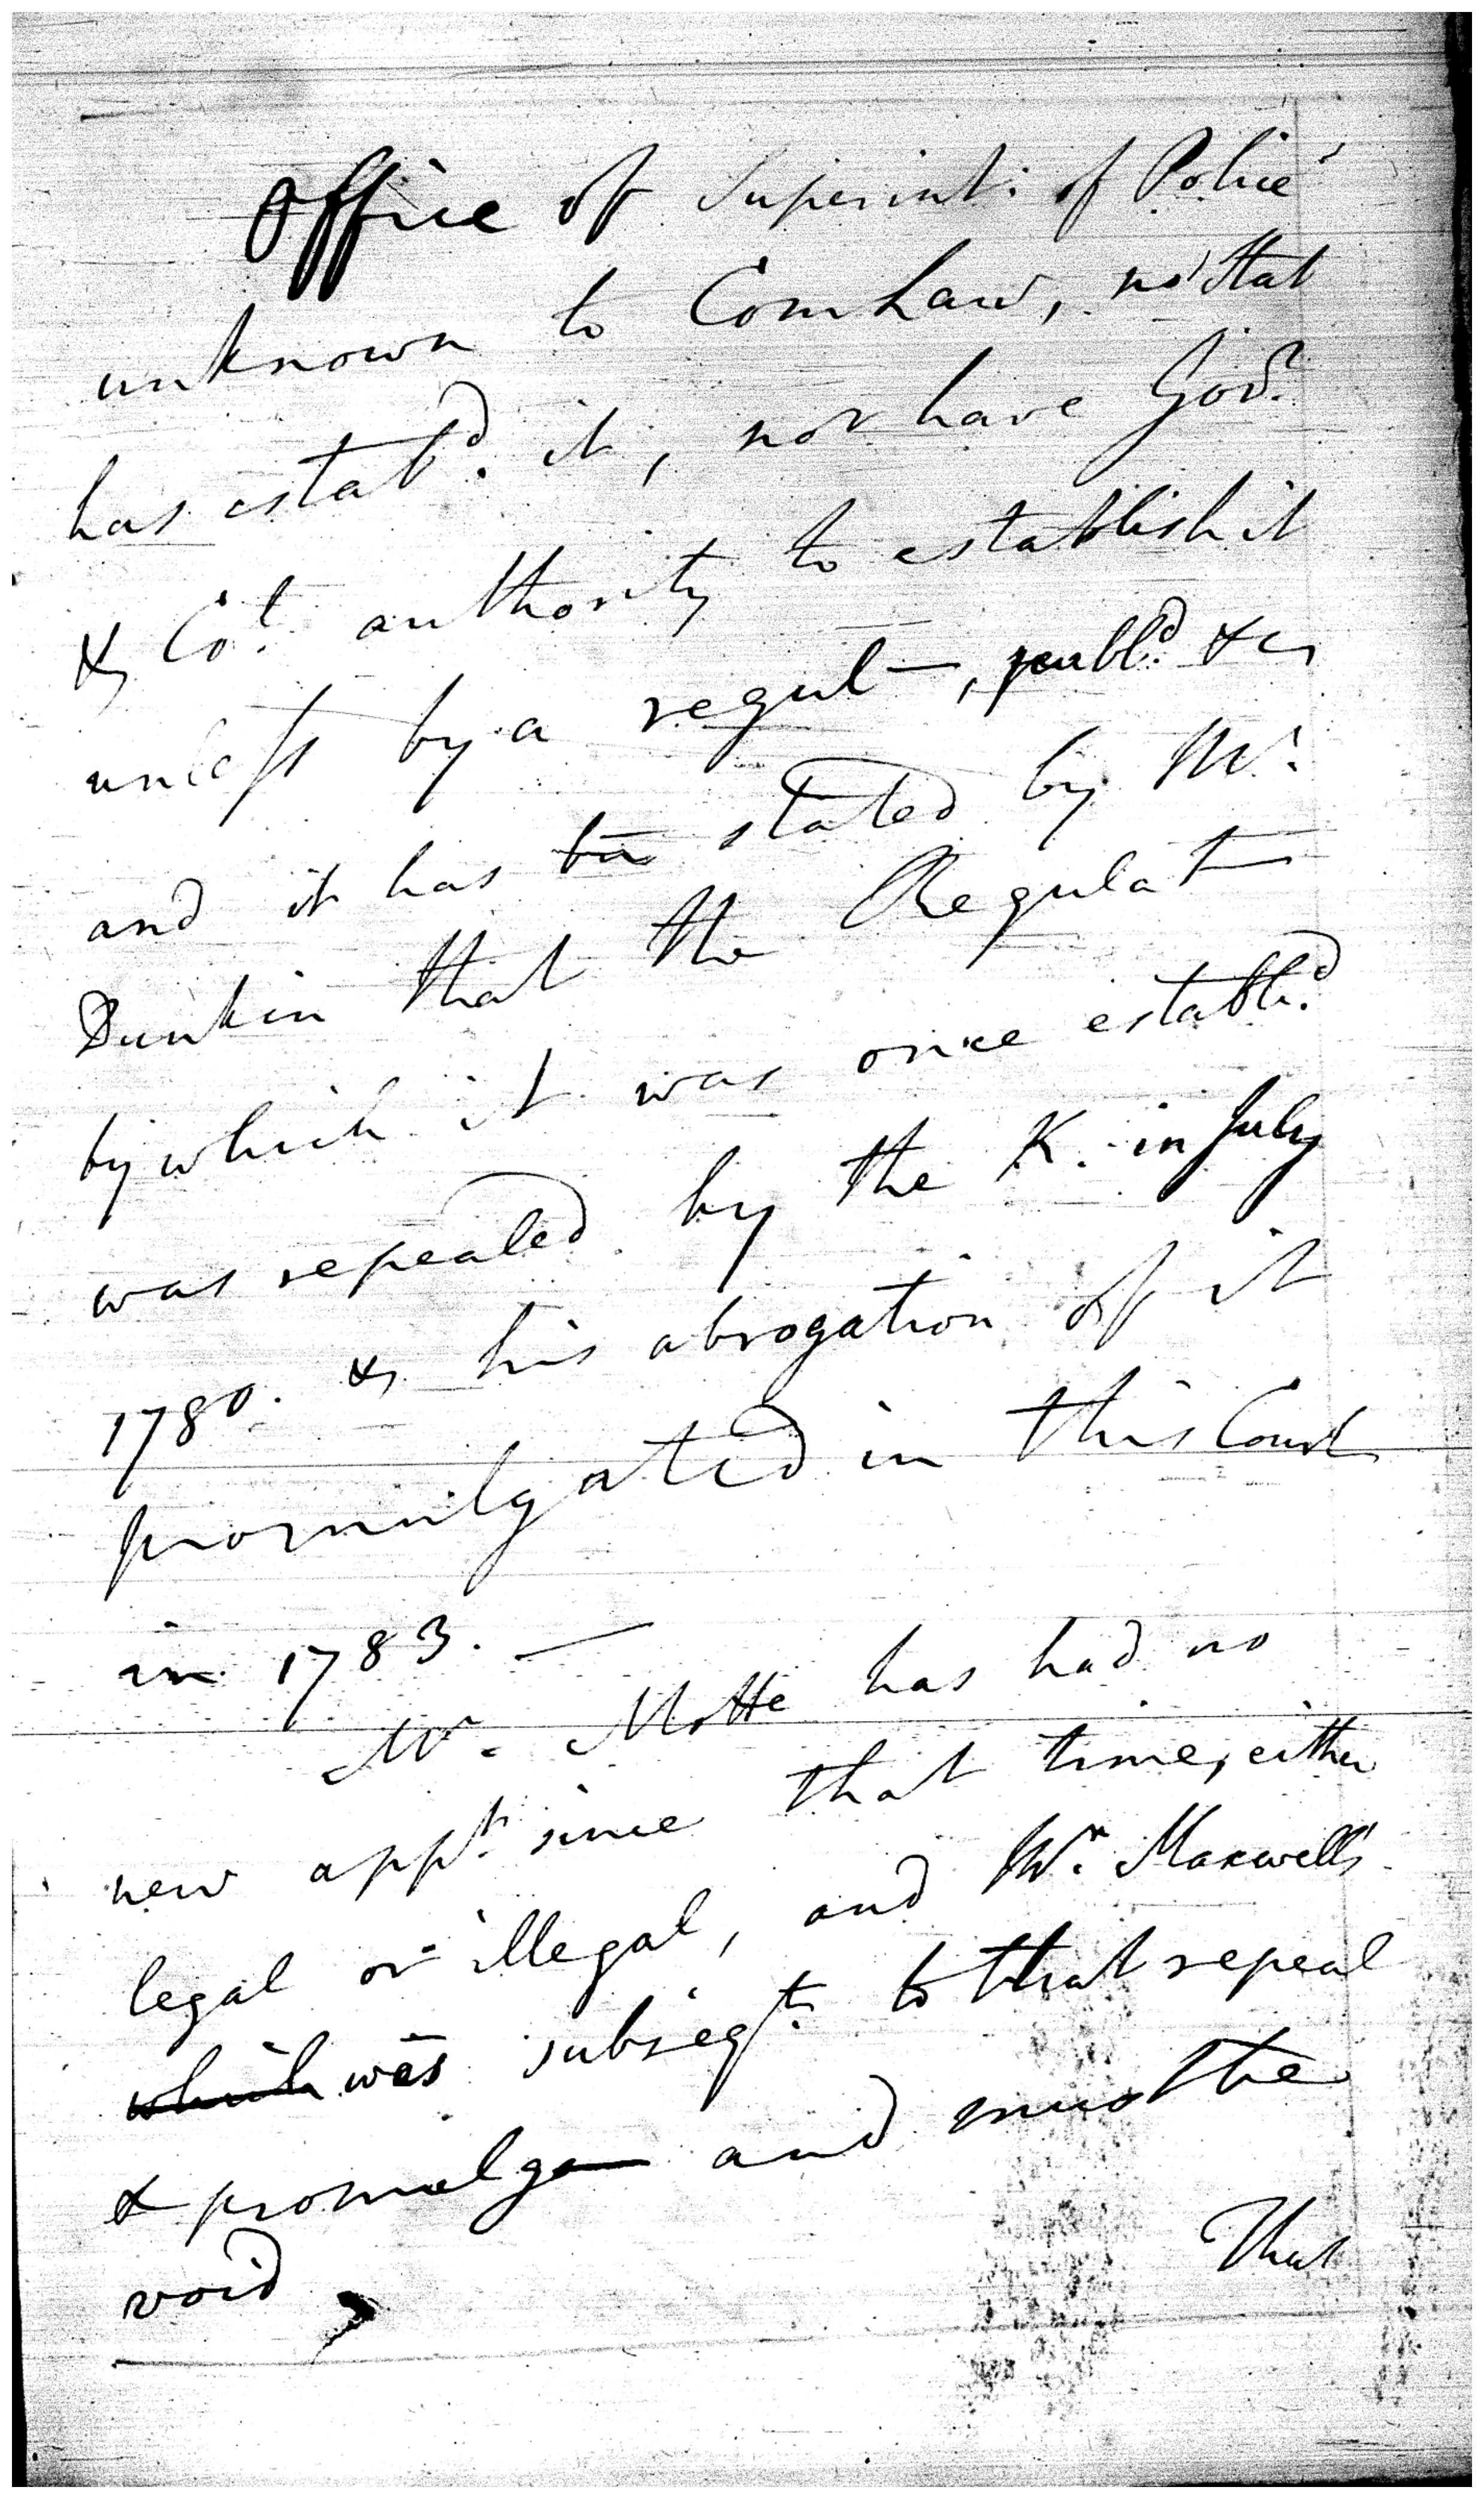 Office of Superint: of Police
unknown to Com Law, no Stat
has estab.d it, nor have Gov.r
& Co.l authority to establish it
unless by a regul—, publ.d &c
and it has bn stated by Mr.
Dunkin that the Regulat—
by which it was once establ.d
was repealed by the K. in July
1780. & his abrogation of it
promulgated in this Court
in 1783. —
Mr. Motte has had no
new app.t since that time, either
legal or illegal, and Mr. Maxwell's
which was subseq.t to that repeal
& promulga— and must be
void,
That